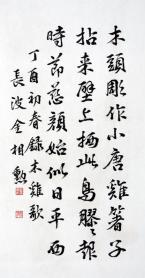 木頭雕作小唐雞箸子
拈來壁上栖此鳥膠膠報
時節慈顔始似日平西
丁酉初春錄木雞歌
長波金相勳